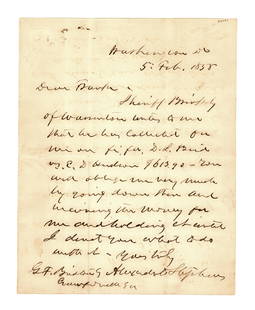 Washington DC
5. Feb. 1858
Dear
Sheriff
of Warrenton writes to me
that he has collected for
me on fi fa, D. L.
vs. R. D. $613.90 - You
will oblige me very much
by going down then and
receiving the money for
me and holding it until
I direct you what to do
with it - Yours truly
Alexander H Stephens
Crawfordville Ga